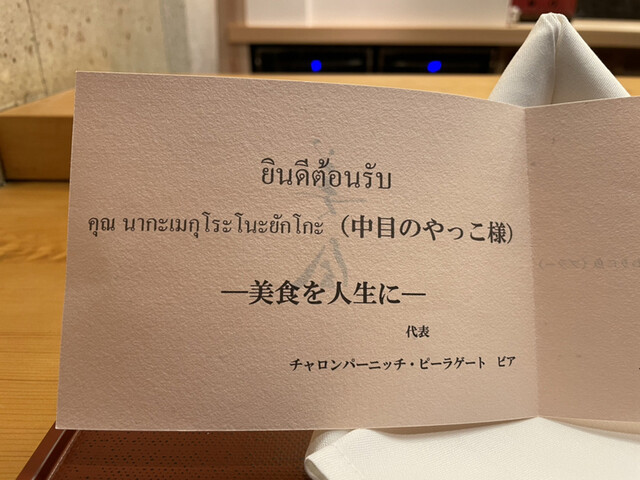 ยินดีต้อนรับ
คุณ นากะเมกุโระโนะยักโกะ (中目のやっこ様)
―美食を人生に―
代表
チャロンパーニッチ・ピーラゲート ピア